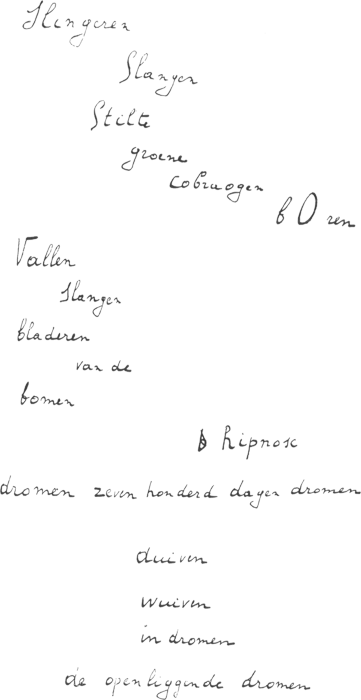 Slingeren
Slangen
Stilte
groene
cobraogen
bOren
Vallen
slangen
bladeren
van de
bomen
hipnose
dromen zeven honderd dagen dromen
duiven
wuiven
in dromen
de openliggende dromen